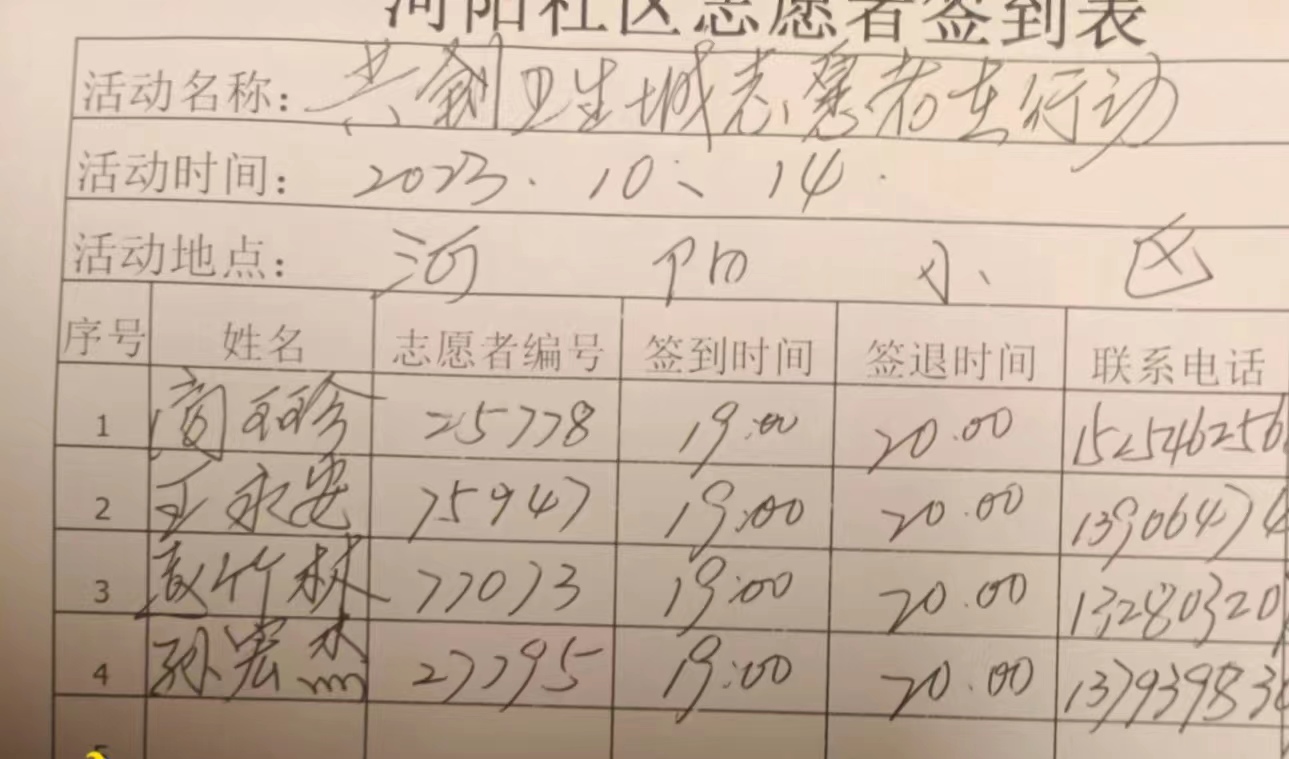 河阳社区志愿者签到表
活动名称: 共创卫生城志愿者在行动
活动时间: 2023.10、14.
活动地点: 河阳小区
序号 姓名 志愿者编号 签到时间 签退时间 联系电话
1 25778 19:00 20.00 152546256
2 王永安 75947 19:00 20.00 13906474
3 赵竹林 77073 19:00 20.00 13280320
4 孙宏杰 27795 19:00 20.00 137939830
5